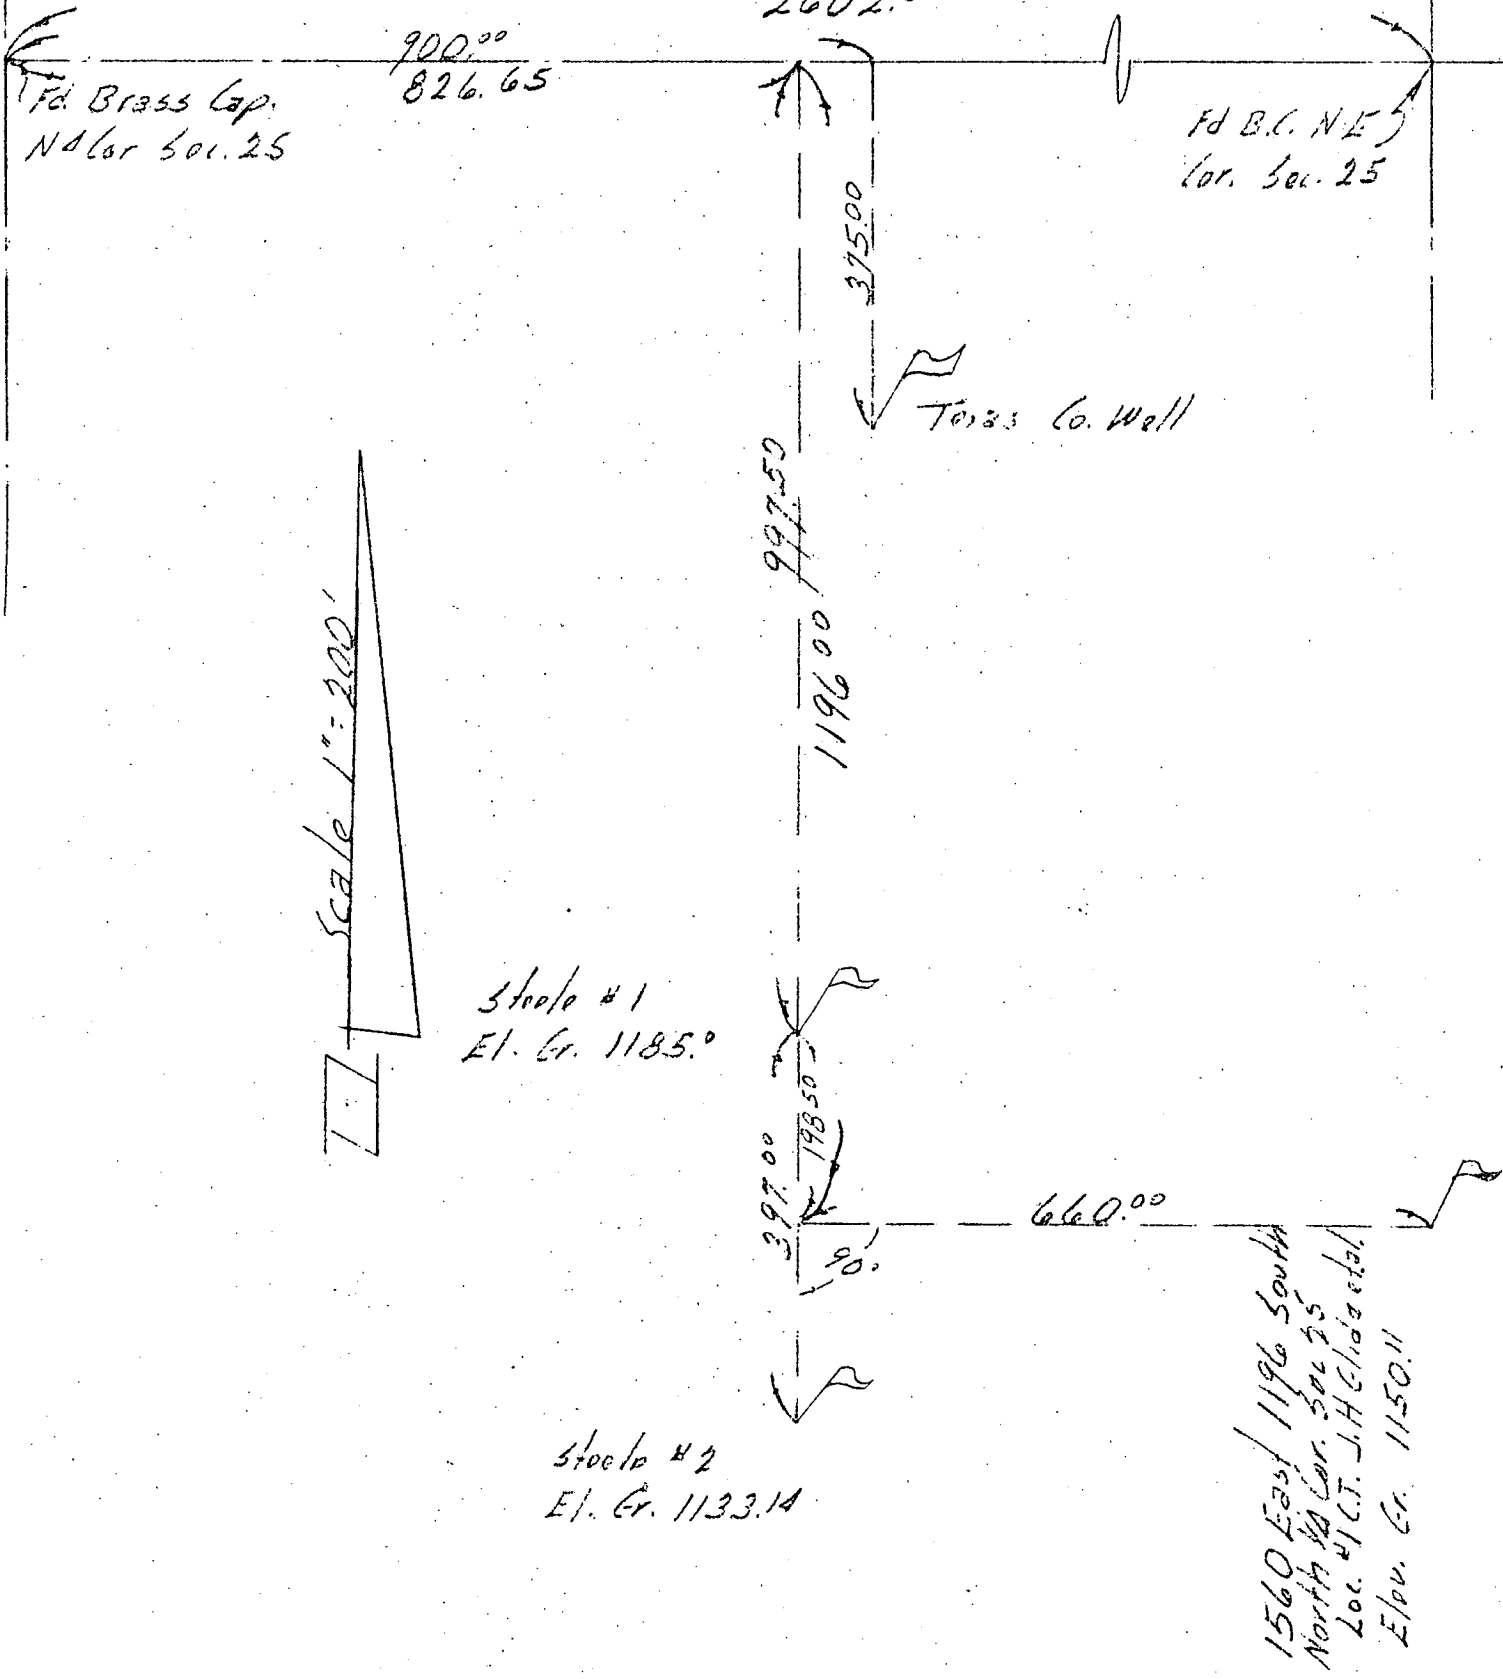 2602.
900.00
826.65
Fd. Brass Cap.
N¼ Cor Sec. 25
Fd B.C. N.E
Cor. Sec. 25
375.00
Texas Co. Well
997.50
1196.00
Scale 1" = 200'
Steele #1
El. Gr. 1185.0
198.50
397.00
660.00
90°
Steele #2
El. Gr. 1133.14
1560 East 1196 South
North ¼ Cor. Sec 25
Loc. #1 C.T. J.H et al.
Elev. Gr. 1150.11